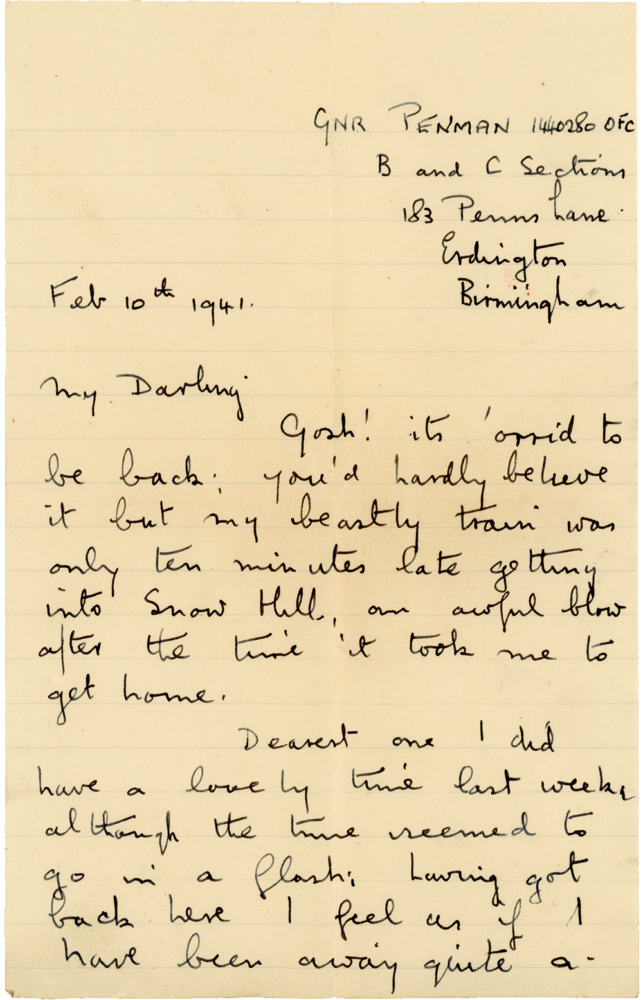 GNR PENMAN 1440280 OFC
B and C Sections
183 Penns Lane
Erdington
Birmingham
Feb 10th 1941.
My Darling
Gosh! its 'orrid to
be back; you'd hardly believe
it but my beastly train was
only ten minutes late getting
into Snow Hill, an awful blow
after the time it took me to
get home.
Dearest one I did
have a lovely time last week,
although the time seemed to
go in a flash; having got
back here I feel as if I
have been away quite a.